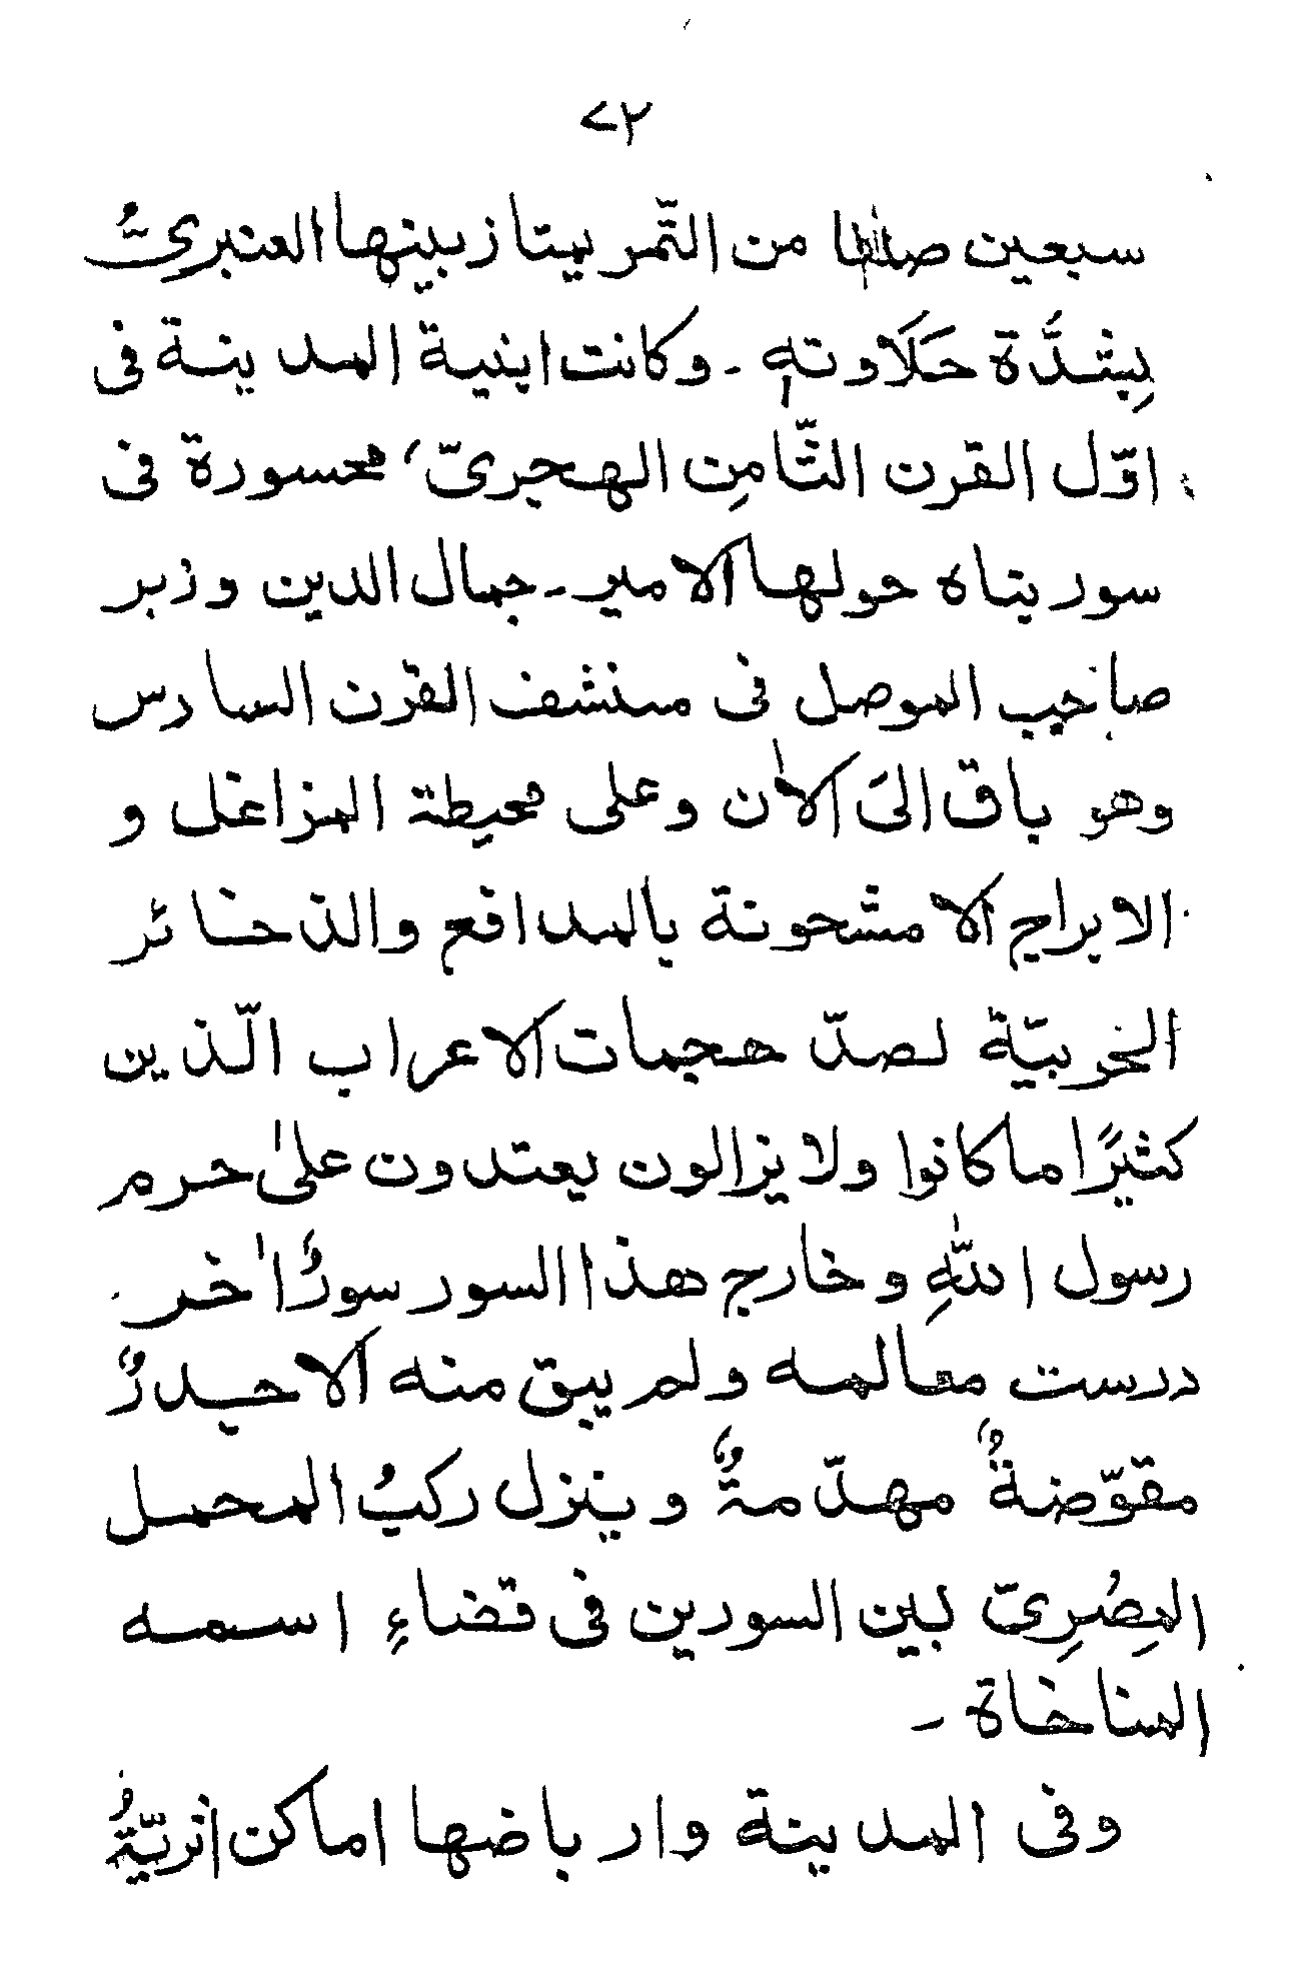 ٧٢
سبعين من التّمر يمتاز بينها العنبريُّ
بِشدَّة حَلَاوته - وكانت ابنية المدينة فى
اوّل القرن الثّامِن الهجرىّ، محسورة فى
سور بناه حولها الامير - جمال الدين وزير
صاحب الموصل فى منشف القرن السادس
وهو باق الىَ الاٰن وعلى محيطة المزاغل و
الابراج الامشحونة بالمدافع والذخائر
الخربيّة لصدّ هجمات الاعراب الّذين
كثيرًا ما كانوا ولا يزالون يعتدون علىٰ حرم
رسول اللّٰهِ وخارج هذا السور سورٌ اٰخر
درست معالمه ولم يبق منه الا جدرٌ
مقوّضةٌ مهدّمةٌ وينزل ركبُ المحمل
المِصُرِىّ بين السورين فى قضاءٍ اسمه
المناخاة -
وفى المدينة وارباضها اماكن اثريّةُ